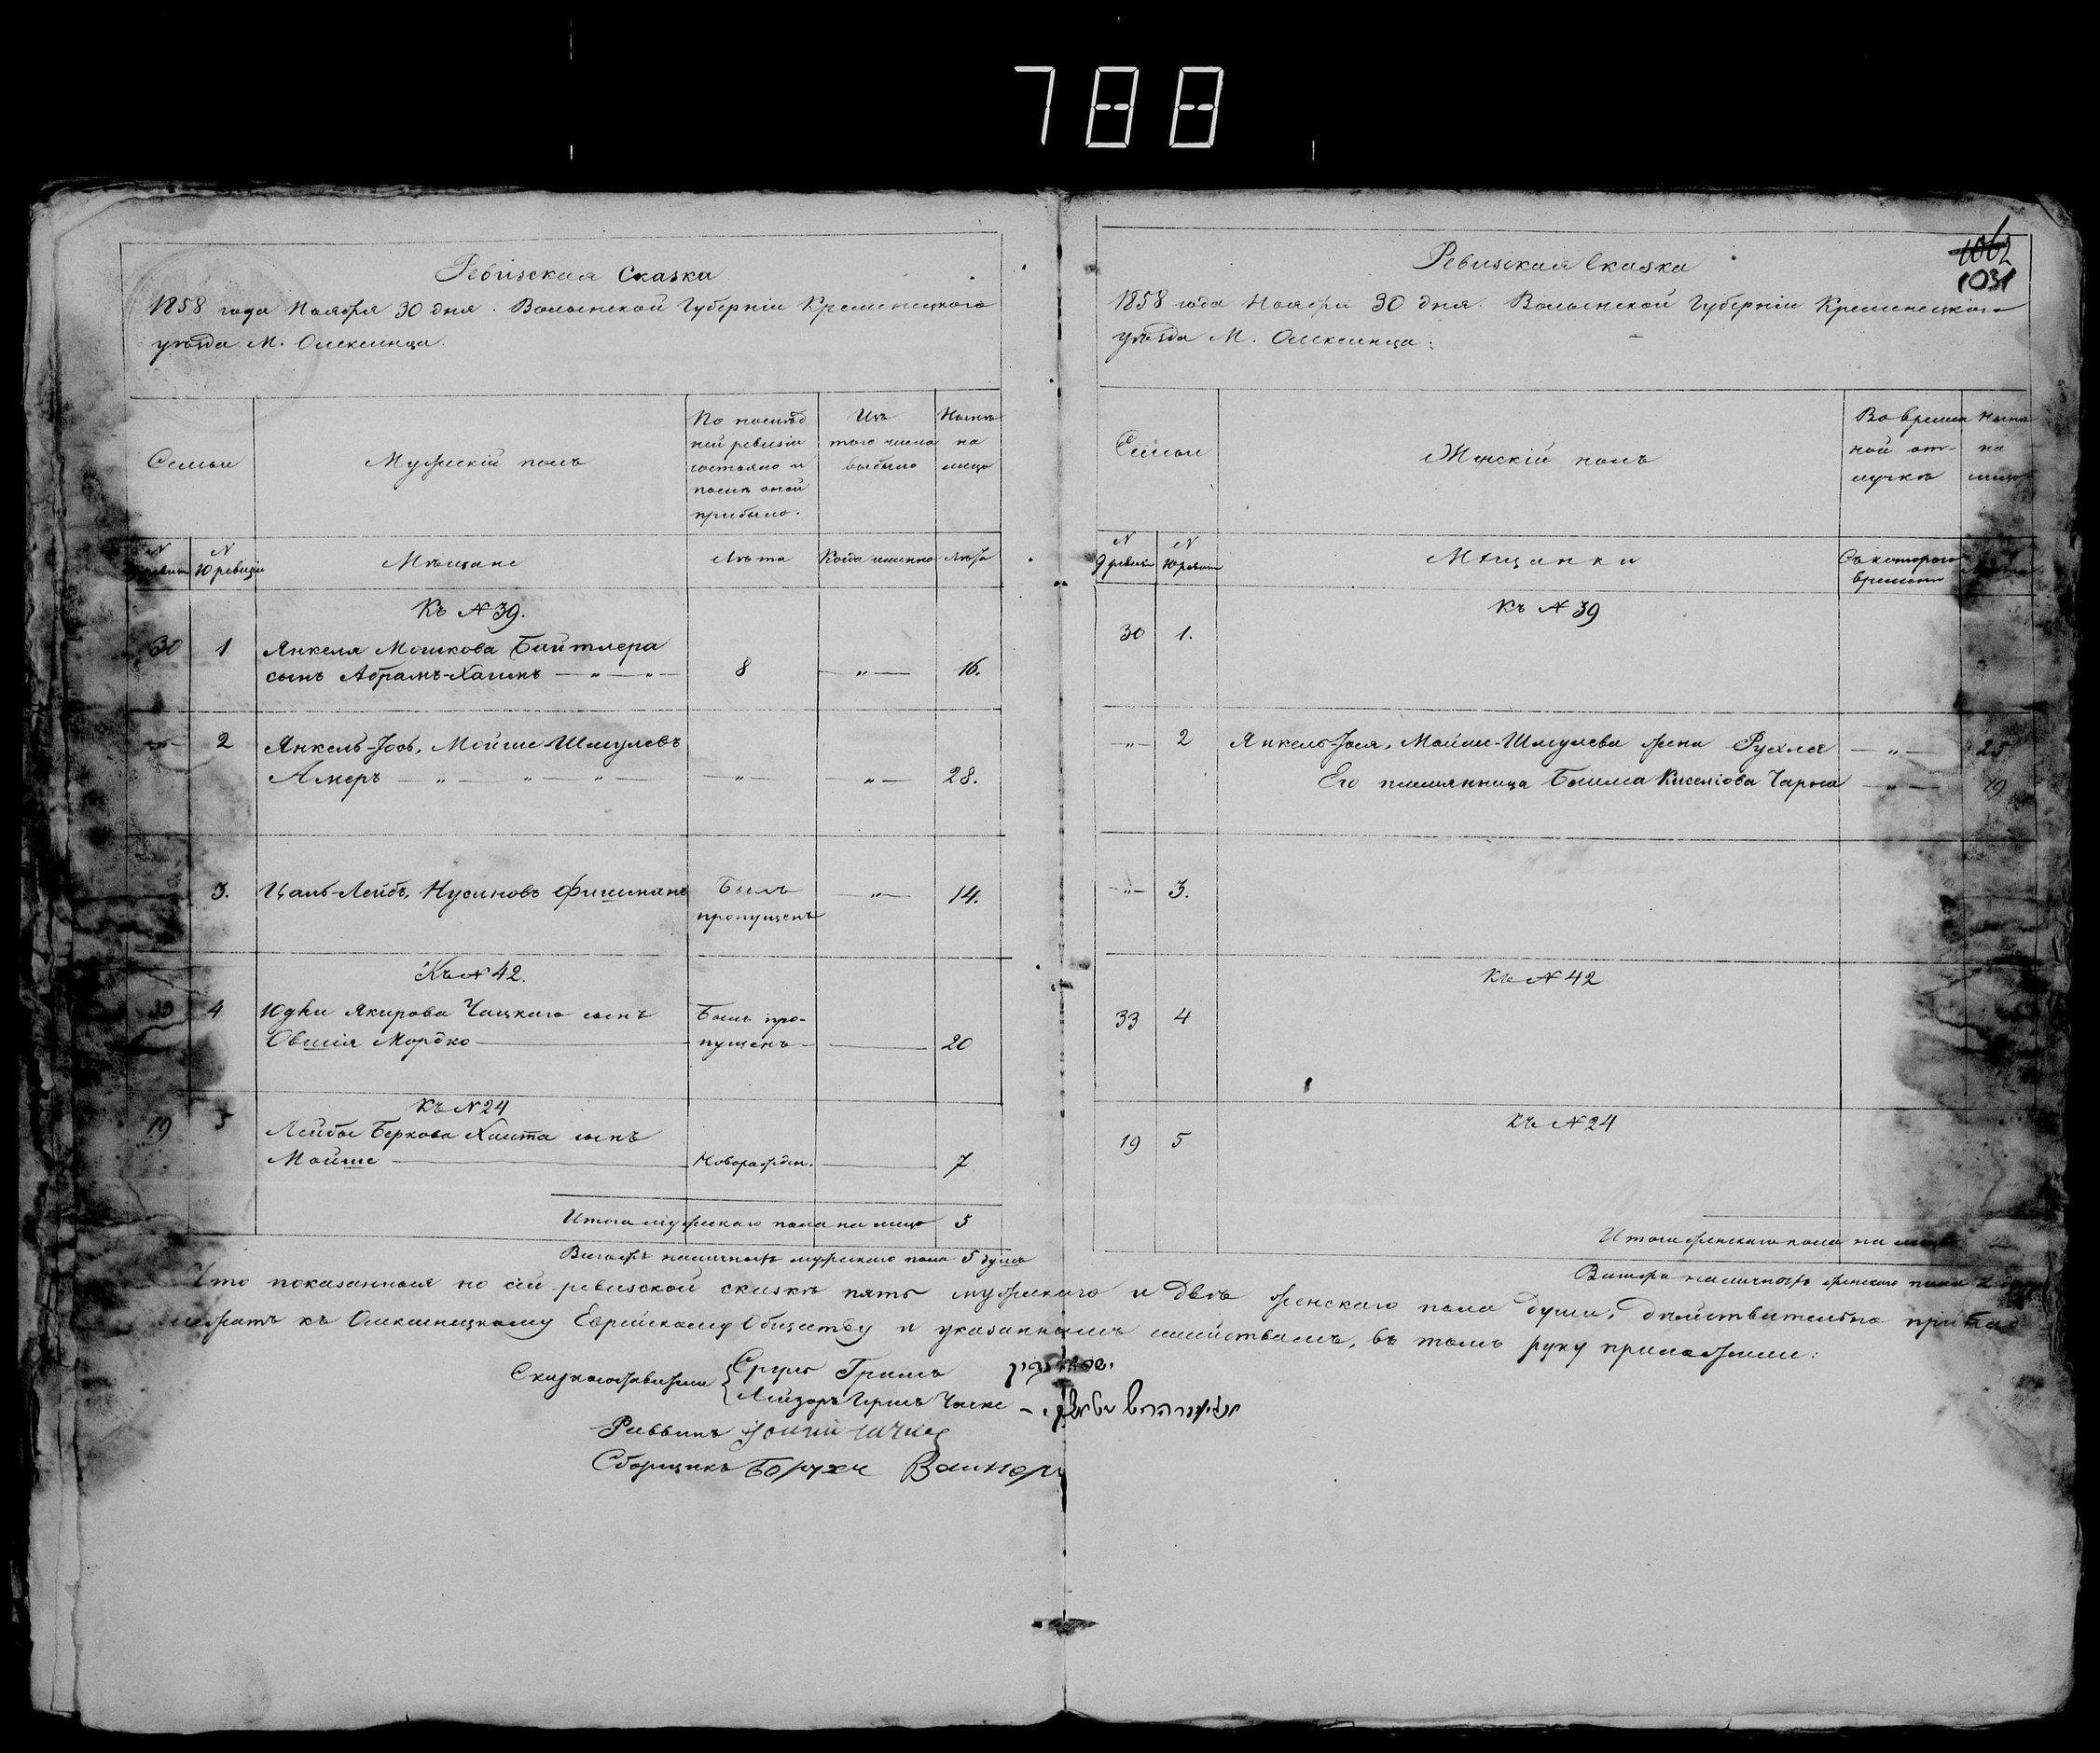 788
Ревизская Сказка
1858 года Ноября 30 дня. Волынской Губерніи Кременецкого
уѣзда М. Олексинца.
Семьи
Мужескій полъ
По послѣд
ней ревизіи
состояло и
послѣ оной
прибыло.
Изъ
того числа
выбыло
Нынѣ
на
лицо
N
ревизіи
N
10 ревизіи
Мѣщане
Лѣта
Когда именно
Лѣта
Къ N 39.
30 1 Янкеля Мошкова Байтлера
сынъ Абрамъ-Хаимъ — „ — „ — 8 — „ — 16.
— „ — 2 Янкель-Jось, Мойше Шмулевъ
Амеръ — „ — „ — „ — — „ — — „ — 28.
3. Цаль-Лейбъ, Нусиновъ Фишманъ Былъ — „ — 14.
пропущенъ
Къ N 42.
33 4 Юдки Якирова Чацкаго сынъ Былъ про-
Овшія Мордко — пущенъ — — 20
Къ N 24
19 5 Лейбы Беркова Хаита сынъ
Мойше — Новорожден. — 7
Итого мужескаго пола на лицо 5
Вмѣстѣ наличность мужескаго пола 5 душъ
1062
1031
Ревизская Сказка
1858 года Ноября 30 дня. Волынской Губерніи Кременецкого
уѣзда М. Олексинца:
Семьи
Женскій полъ
Во времен
ной от-
лучкѣ
Нынѣ
на
лицо
N
9 ревизіи
N
10 ревизіи
Мѣщанки
Съ котораго
времени
Къ N 39
30 1.
— „ — 2 Янкель-Jося, Мойше-Шмулева жена Рухля — „ — 25
Его племянница Былима Киселіова Чарна — „ — 19
— „ — 3.
Къ N 42
33 4
Къ N 24
19 5
Итого женскаго пола на лицо 2
наличность женскаго пола 2
Что показанныя по сей ревизской сказкѣ пять мужескаго и двѣ женскаго пола души, дѣйствительно принад
лежатъ къ Олексинецкому Еврейскому Обществу и указаннымъ семействамъ, въ томъ руку приложили:
Сруль Гринъ
Лейзоръ Герш
Раввинъ
Сборщикъ Борухъ Вайнеръ